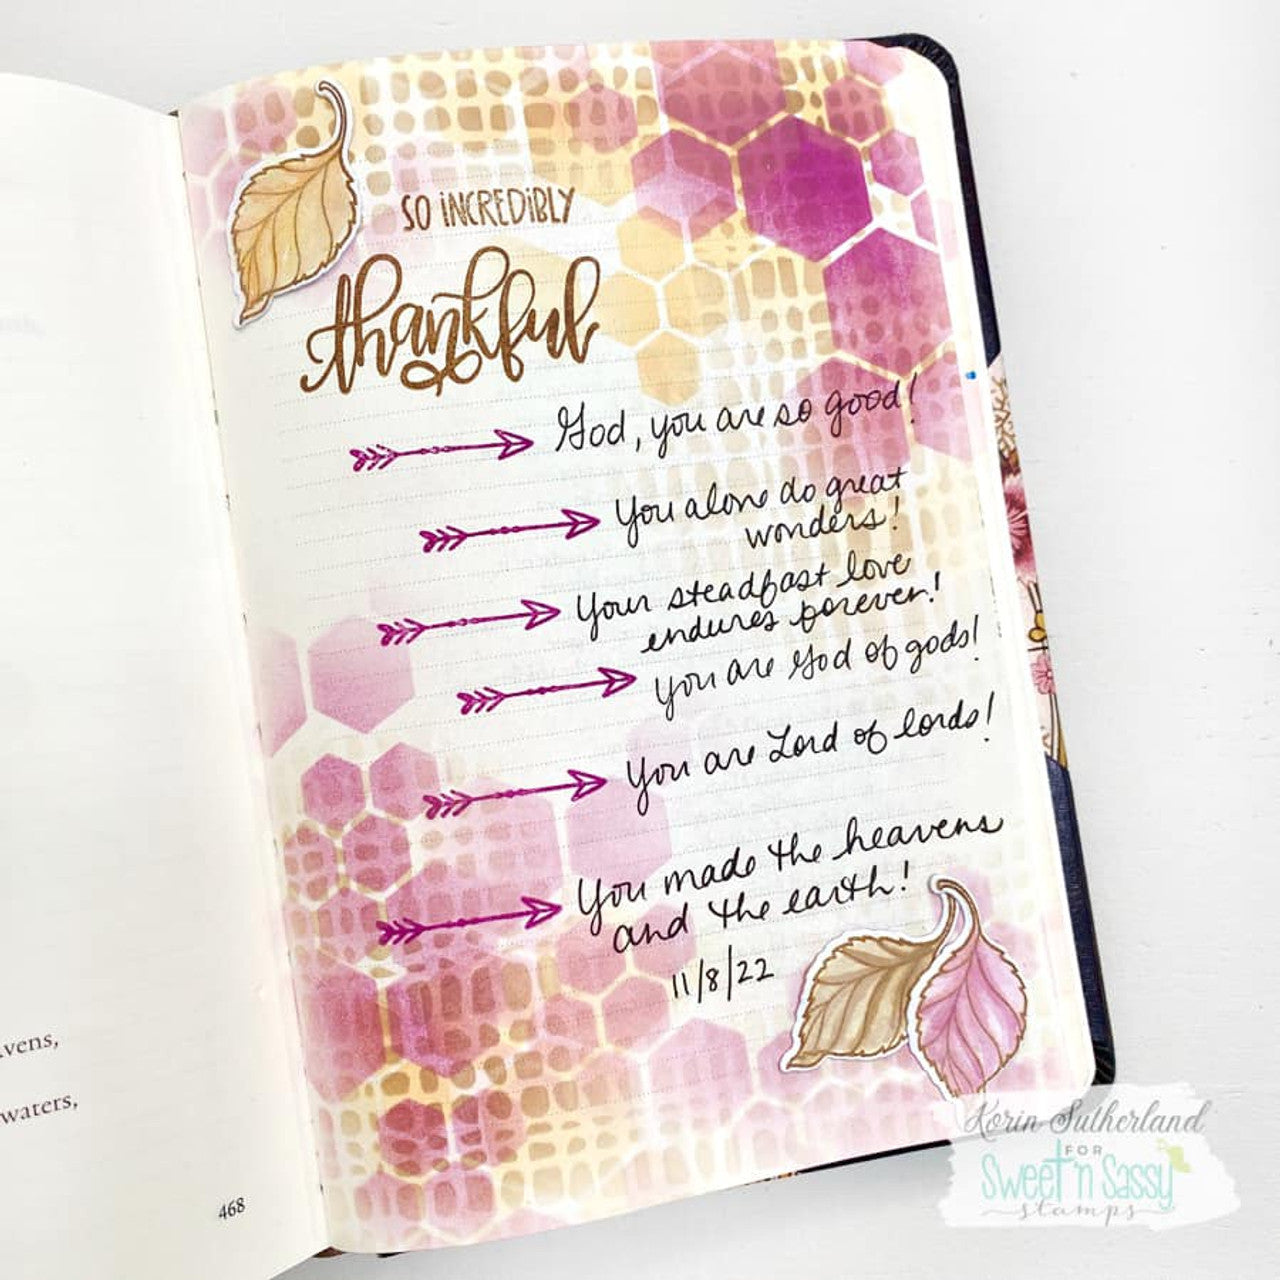 so incredibly
thankful
God, you are so good!
You alone do great
wonders!
Your steadfast love
endures forever!
You are God of gods!
You are Lord of lords!
You made the heavens
and the earth!
11/8/22
waters,
468
Korin Sutherland
FOR
Sweet 'n Sassy
stamps